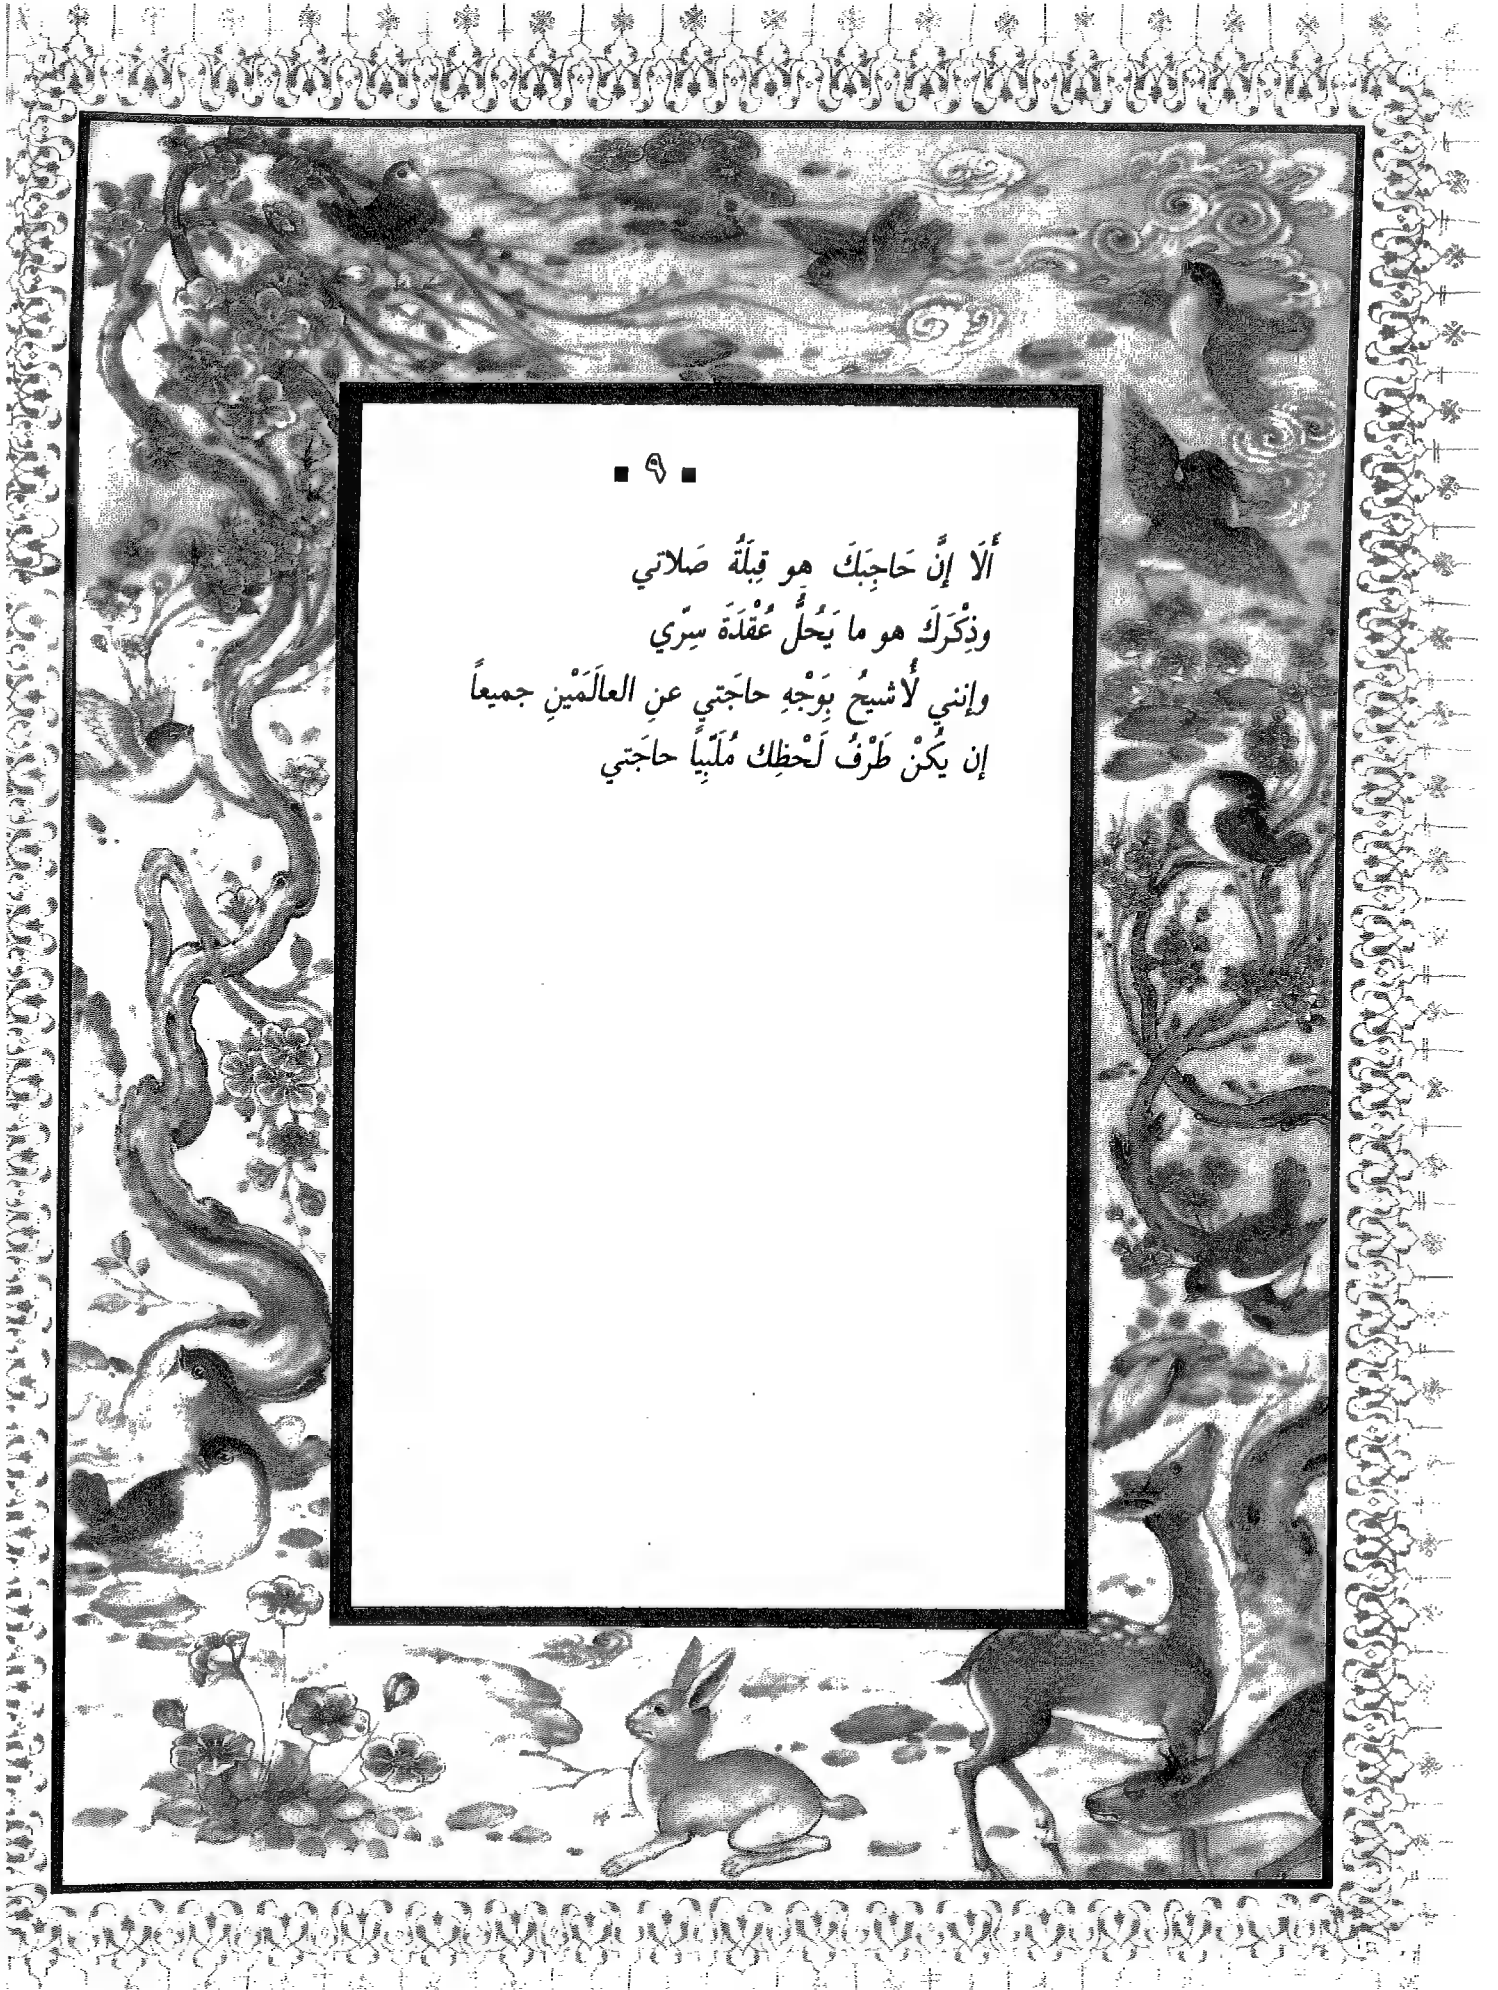 ▪ ٩ ▪
أَلَا إِنَّ حَاجِبَكَ هو قِبلَةُ صَلاتي
وذِكْرَكَ هو ما يَحُلُّ عُقْدَةَ سِرّي
وإنني لُأشيحُ بِوَجْهِ حاجَتي عنِ العالَمَيْنِ جميعاً
إن يكُنْ طَرْفُ لَحْظِك مُلَبِّياً حاجَتي